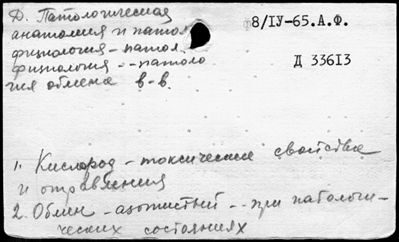 Д. Патологическая
анатомия и патол
физиология - патол.
физиология - - патоло
гия обмена в-в.
8/IV-65.А.Ф.
Д 33613
1. Кислород - токсические свойства
и отравления
2. Обмен - азотистый - - при патологи-
ческих состояниях